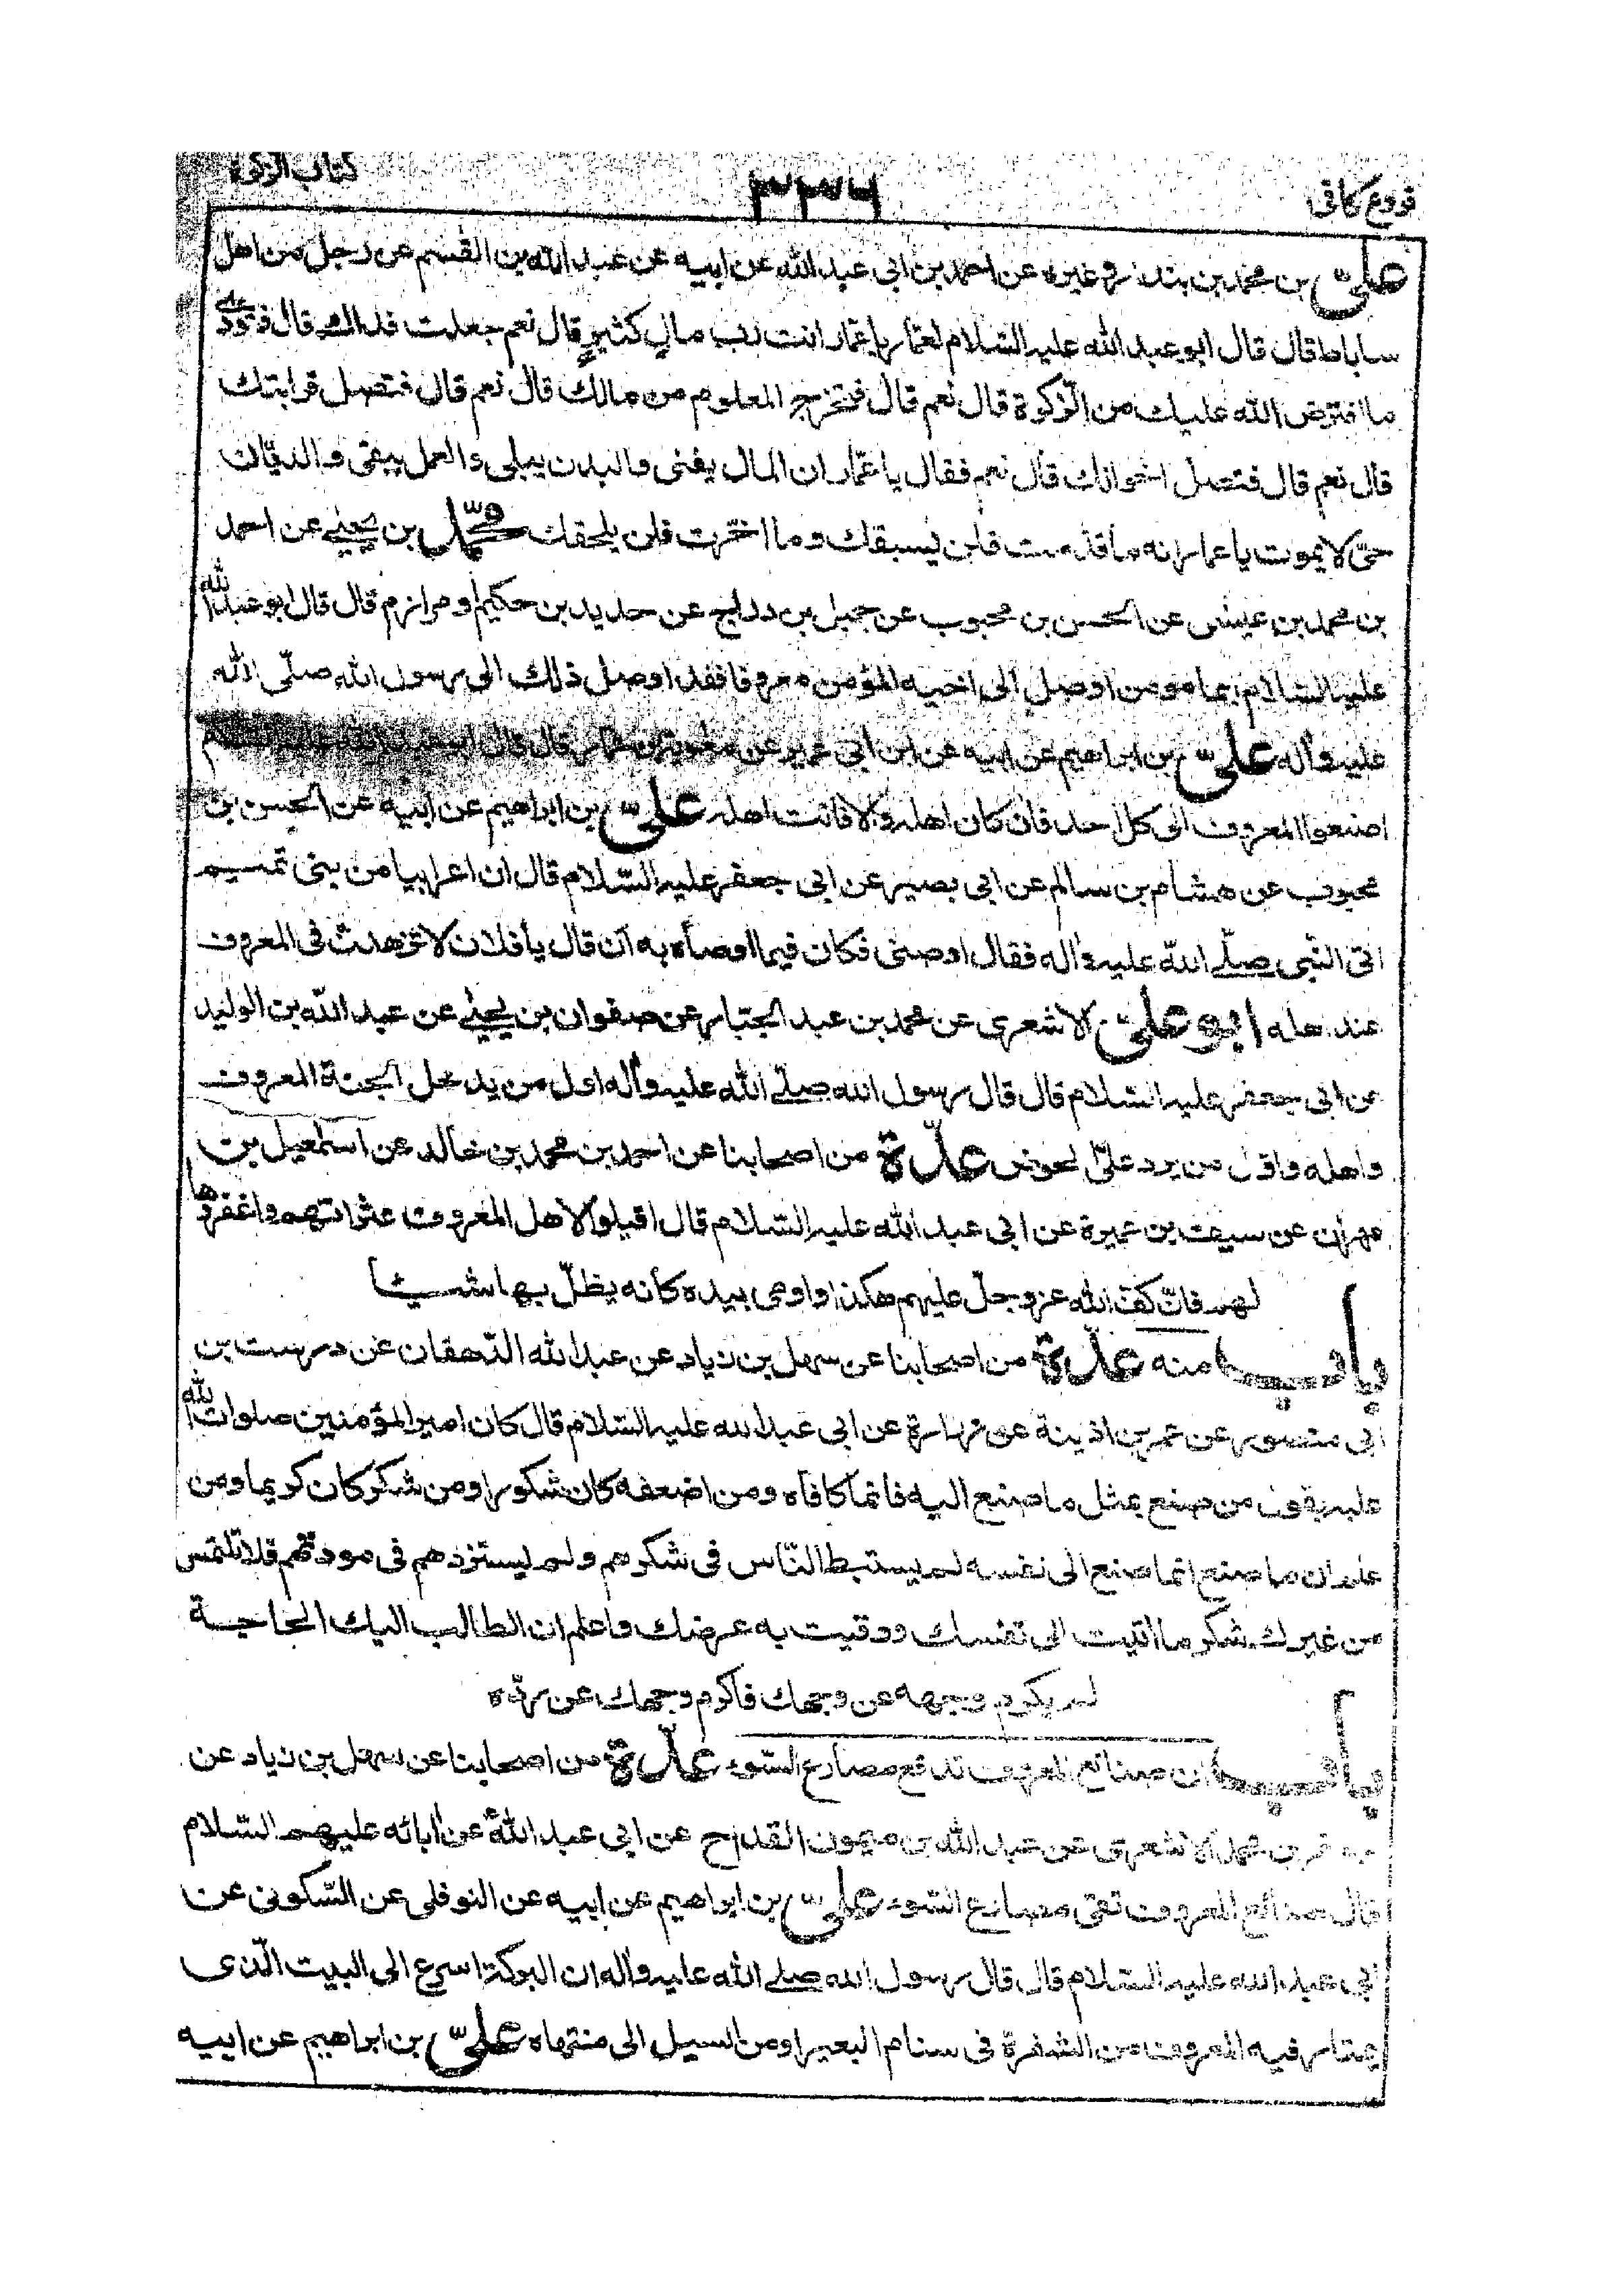 فروع كافى ٣٣٦ كتاب الزكوة
علىّ بن محمد بن بندار وغيره عن احمد بن ابى عبد الله عن ابيه عن عبد الله بن القسم عن رجل من اهل
ساباط قال قال ابو عبد الله عليه السّلام لعمّار يا عمّار انت رب مال كثير قال نعم جعلت فداك قال فتؤدى
ما افترض الله عليك من الزكوة قال نعم قال فتخرج المعلوم من مالك قال نعم قال فتصل قرابتك
قال نعم قال فتصل اخوانك قال نعم فقال يا عمّار ان المال يفنى والبدن يبلى والعمل يبقى والديّان
حىّ لا يموت يا عمار انه ما قدمت فلن يسبقك وما اخّرت فلن يلحقك محمّد بن يحيى عن احمد
بن محمد بن عيسى عن الحسن بن محبوب عن جميل بن دراج عن حديد بن حكيم او مرازم قال قال ابو عبد الله
عليه السّلام ايما مومن اوصل الى اخيه المؤمن معروفا فقد اوصل ذلك الى رسول الله صلّى الله
عليه وآله علىّ بن ابراهيم عن ابيه عن ابن ابى عمير عن معوية بن عمار قال قال ابو عبد الله عليه السلام
اصنعوا المعروف الى كل احد فان كان اهله والا فانت اهله علىّ بن ابراهيم عن ابيه عن الحسن بن
محبوب عن هشام بن سالم عن ابى بصير عن ابى جعفر عليه السّلام قال ان اعرابيا من بنى تميم
اتى النّبى صلّى الله عليه وآله فقال اوصنى فكان فيما اوصاه به ان قال يا فلان لا تزهدن فى المعروف
عند اهله ابو علىّ الاشعرى عن محمد بن عبد الجبّار عن صفوان بن يحيى عن عبد الله بن الوليد
عن ابى جعفر عليه السّلام قال قال رسول الله صلّى الله عليه وآله اول من يدخل الجنة المعروف
واهله واول من يرد علىّ الحوض عدّة من اصحابنا عن احمد بن محمد بن خالد عن اسمعيل بن
مهران عن سيف بن عميرة عن ابى عبد الله عليه السّلام قال اقيلوا لاهل المعروف عثراتهم واغفروها
لهم فانّ كفّ الله عز وجلّ عليهم هكذا واومى بيده كانه يظلّ بها شيئا
باب منه عدّة من اصحابنا عن سهل بن زياد عن عبد الله الدّهقان عن درست بن
ابى منصور عن عمر بن اذينة عن زرارة عن ابى عبد الله عليه السّلام قال كان امير المؤمنين صلوات الله
عليه يقول من صنع بمثل ما صنع اليه فانما كافاه ومن اضعفه كان شكورا ومن شكر كان كريما ومن
علم ان ما صنع انما صنع الى نفسه لم يستبط النّاس فى شكرهم ولم يستزدهم فى مودتهم فلا تلتمس
من غيرك شكر ما اتيت الى نفسك ووقيت به عرضك واعلم ان الطالب اليك الحاجة
لم يكرم وجهه عن وجهك فاكرم وجهك عن ردّه
باب ان صنائع المعروف تدفع مصارع السّوء عدّة من اصحابنا عن سهل بن زياد عن
جعفر بن محمد الاشعرى عن عبد الله بن ميمون القداح عن ابى عبد الله عن آبائه عليهم السّلام
قال صنائع المعروف تقى مصارع السّوء علىّ بن ابراهيم عن ابيه عن النوفلى عن السّكونى عن
ابى عبد الله عليه السّلام قال قال رسول الله صلّى الله عليه وآله ان البركة اسرع الى البيت الّذى
يمتار فيه المعروف من الشفرة فى سنام البعير او من السيل الى منتهاه علىّ بن ابراهيم عن ابيه